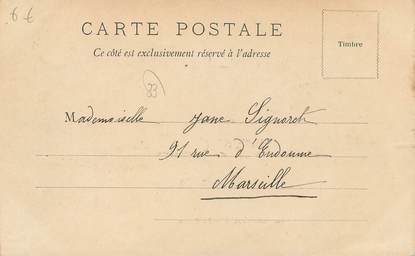 6 €
CARTE POSTALE
Ce côté est exclusivement réservé à l'adresse
Timbre
33
Mademoiselle Jane Signoret
91 rue d'Endoume
Marseille